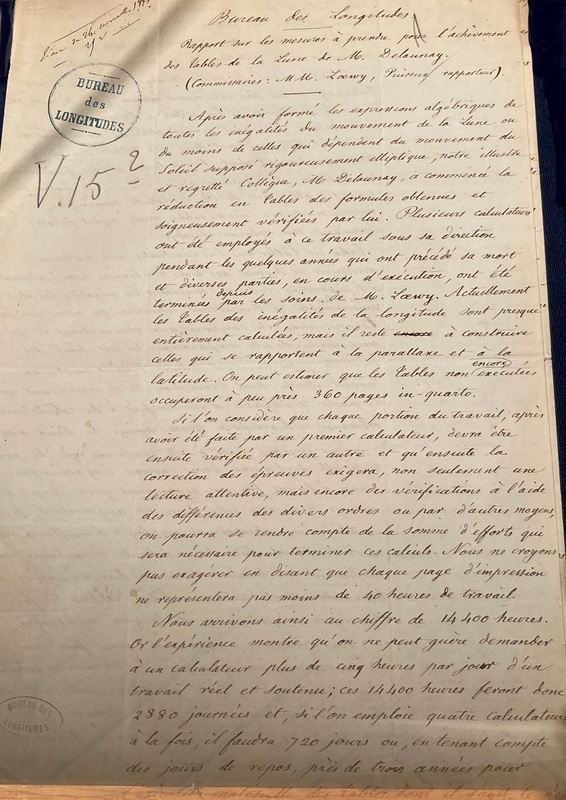 Bureau des Longitudes
Rapport sur les mesures à prendre pour l'achèvement
des Tables de la Lune de M. Delaunay.
(Commissaires: MM. Lœwy, Puiseux rapporteur).
BUREAU
des
LONGITUDES
V. 15 2
Après avoir formé les expressions algébriques de
toutes les inégalités du mouvement de la Lune ou
du moins de celles qui dépendent du mouvement du
Soleil supposé rigoureusement elliptique, notre illustre
et regretté Collègue, M. Delaunay, a commencé la
réduction en Tables des formules obtenues et
soigneusement vérifiées par lui. Plusieurs calculateurs
ont été employés à ce travail sous sa direction
pendant les quelques années qui ont précédé sa mort
et diverses parties, en cours d'exécution, ont été
terminées depuis par les soins de M. Lœwy. Actuellement
les Tables des inégalités de la longitude sont presque
entièrement calculées, mais il reste encore à construire
celles qui se rapportent à la parallaxe et à la
latitude. On peut estimer que les Tables non encore exécutées
occuperont à peu près 360 pages in-quarto.
Si l'on considère que chaque portion du travail, après
avoir été faite par un premier calculateur, devra être
ensuite vérifiée par un autre et qu'ensuite la
correction des épreuves exigera, non seulement une
lecture attentive, mais encore des vérifications à l'aide
des différences des divers ordres ou par d'autres moyens,
on pourra se rendre compte de la somme d'efforts qui
sera nécessaire pour terminer ces calculs. Nous ne croyons
pas exagérer en disant que chaque page d'impression
ne représentera pas moins de 40 heures de travail.
Nous arrivons ainsi au chiffre de 14 400 heures.
Or l'expérience montre qu'on ne peut guère demander
à un calculateur plus de cinq heures par jour d'un
travail réel et soutenu; ces 14400 heures feront donc
2880 journées et, si l'on emploie quatre calculateurs
à la fois, il faudra 720 jours ou, en tenant compte
des jours de repos, près de trois années pour
BUREAU DES
LONGITUDES